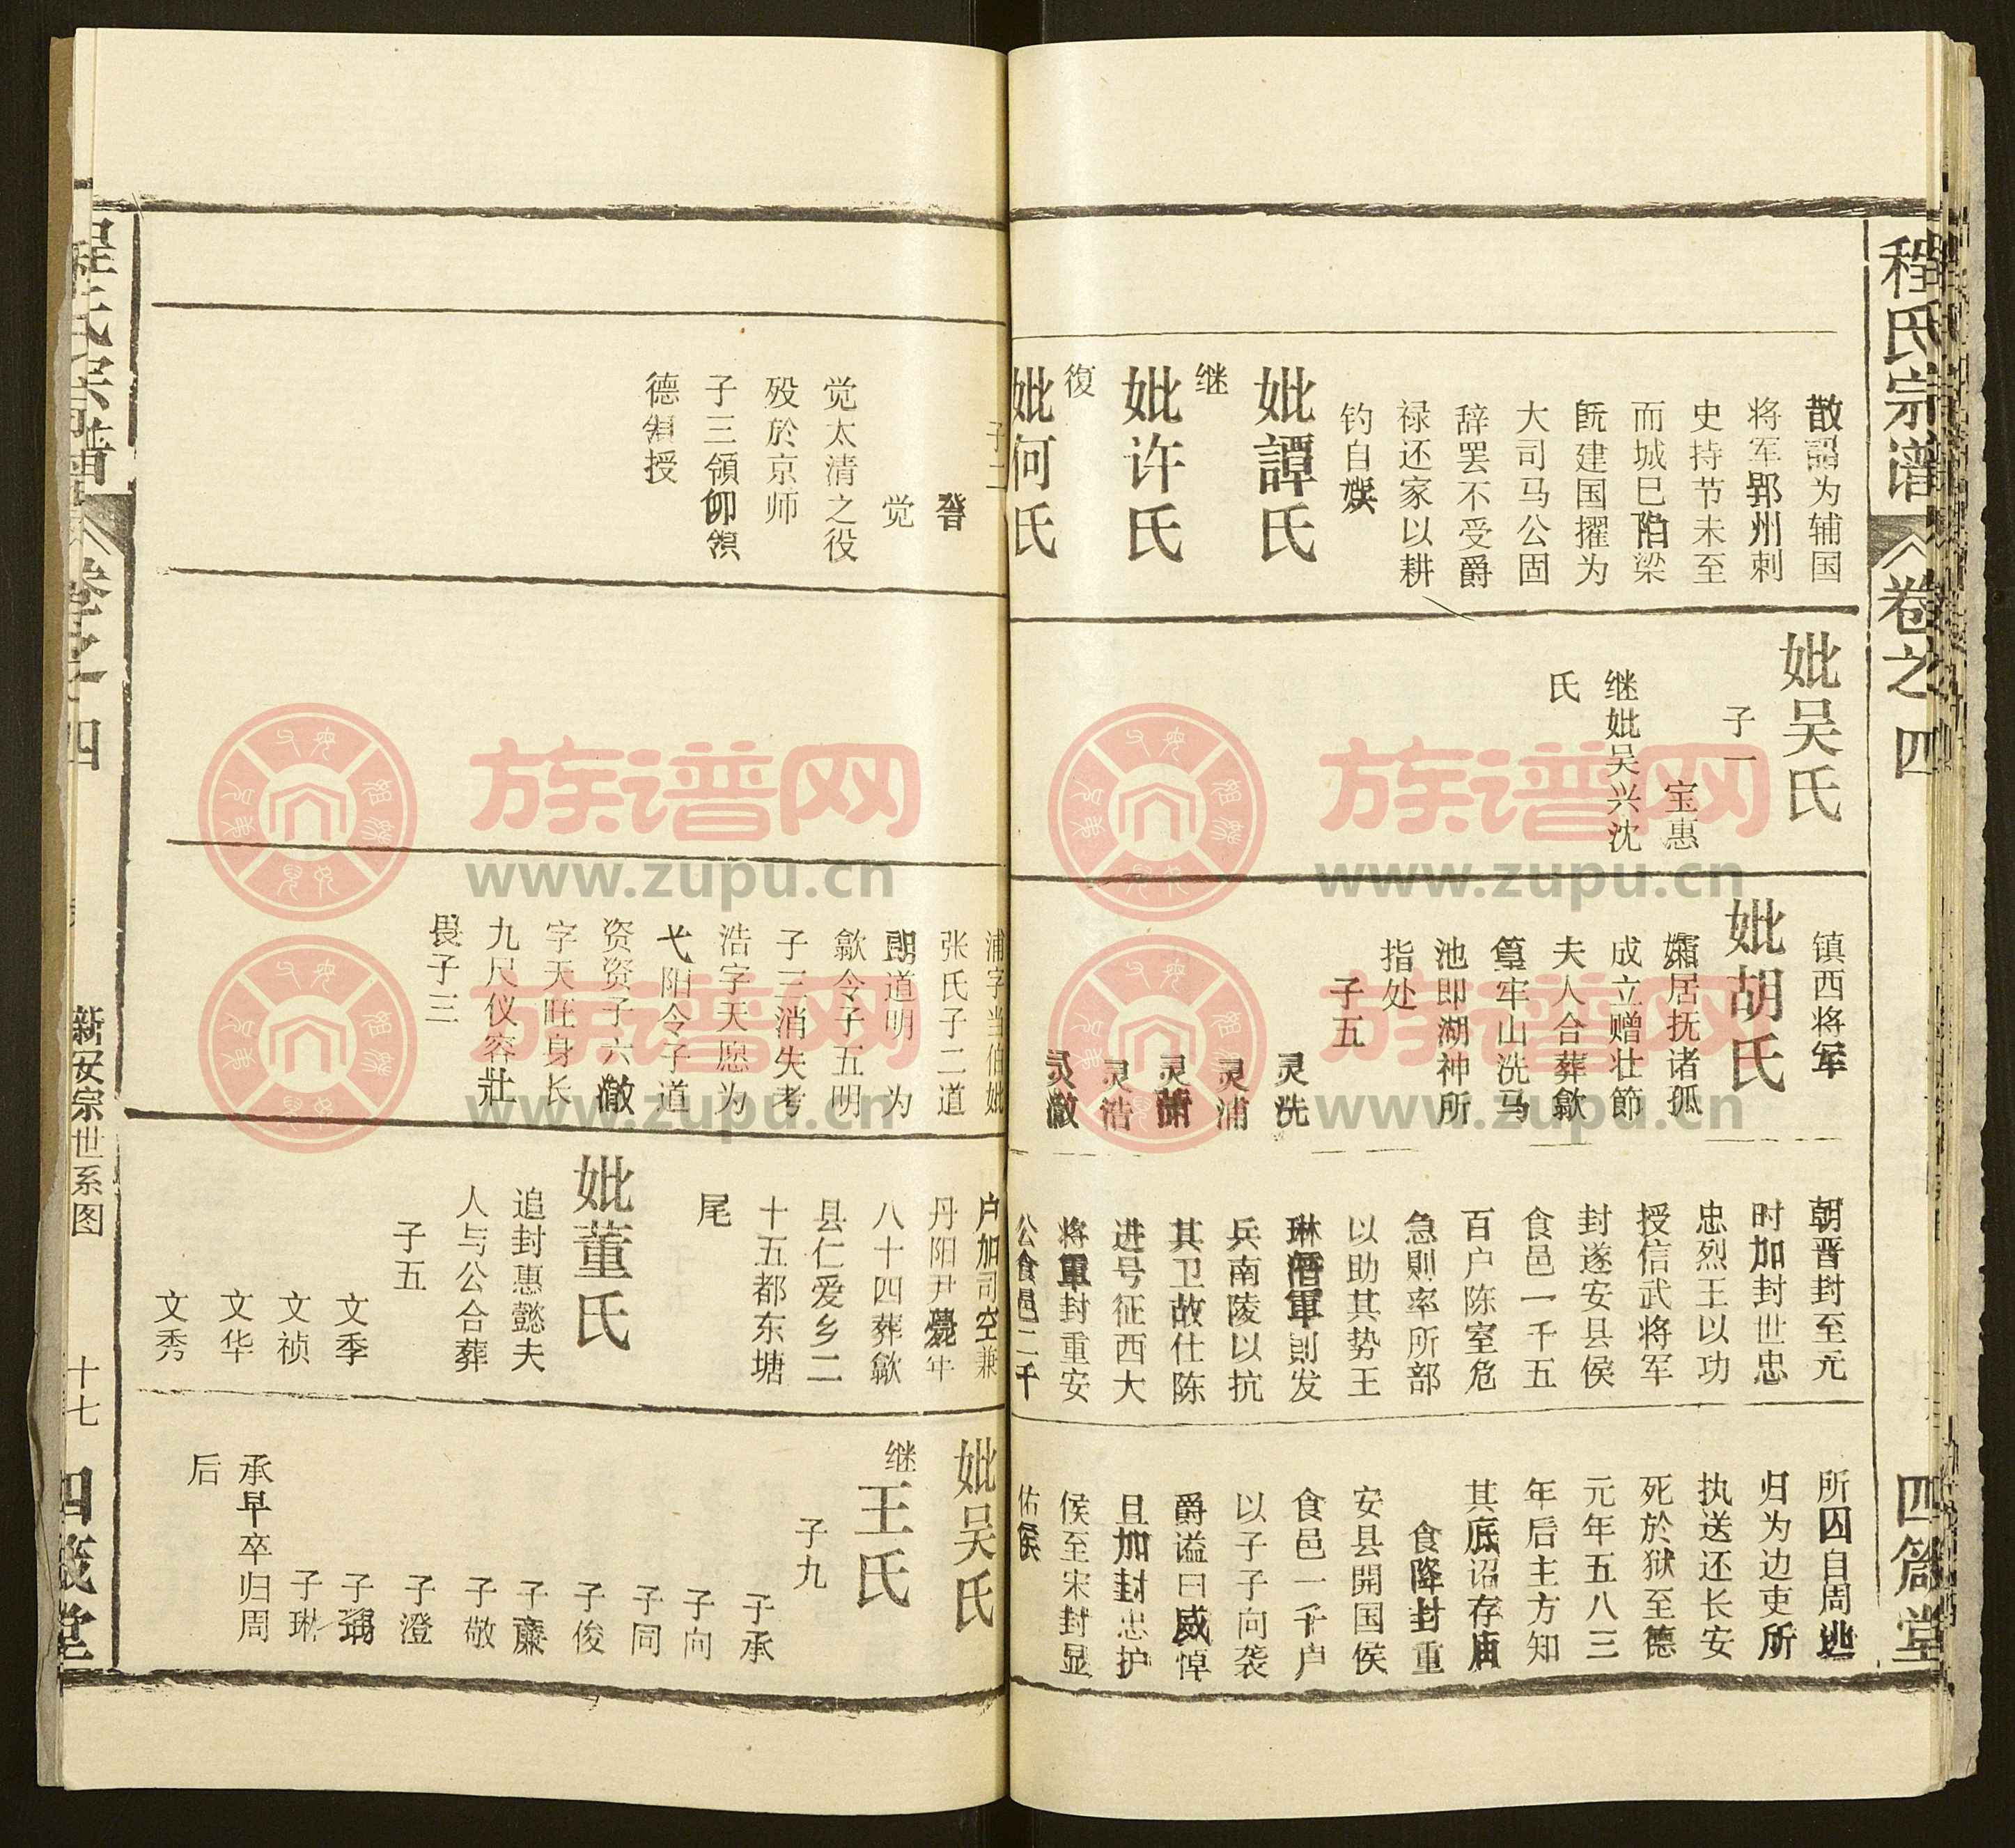 程氏宗谱
卷之四
四箴堂
散詔为辅国
将军郢州刺
史持节未至
而城巳陷梁
既建国擢为
大司马公固
辞罢不受爵
禄还家以耕
钓自娱
妣譚氏
继
妣许氏
復
妣何氏
妣吴氏
子一
宝惠
继妣吴兴沈
氏
镇西将军
妣胡氏
孀居抚诸孤
成立赠壮節
夫人合葬歙
篁牢山洗马
池即湖神所
指处
子五
灵洗
灵浦
灵萧
灵浩
灵澈
朝晋封至元
时加封世忠
忠烈王以功
授信武将军
封遂安县侯
食邑一千五
百户陈室危
急則率所部
以助其势王
琳潛軍則发
兵南陵以抗
其卫故仕陈
进号征西大
将軍封重安
公食邑二千
所囚自周逃
归为边吏所
执送还长安
死於狱至德
元年五八三
年后主方知
其底诏存庙
食降封重
安县開国侯
食邑一千户
以子子向袭
爵谥曰威悼
且加封忠护
侯至宋封显
佑侯
子二
觉
觉太清之役
殁於京师
子三領
德 授
浦字当伯妣
张氏子二道
朗道明 为
歙令子五明
子三消失考
浩字天愿为
弋阳令子道
资资子六澈
字天旺身长
九尺仪容壯
畏子三
户加司空兼
丹阳尹薨年
八十四葬歙
县仁爱乡二
十五都东塘
尾
妣董氏
追封惠懿夫
人与公合葬
子五
文季
文祯
文华
文秀
妣吴氏
继
王氏
子九
子承
子向
子同
子俊
子廉
子敬
子澄
子琳
承早卒归周
后
程氏宗谱
卷之四
新安宗世系图
十七
四箴堂
族谱网
www.zupu.cn
族谱网
www.zupu.cn
族谱网
www.zupu.cn
族谱网
www.zupu.cn